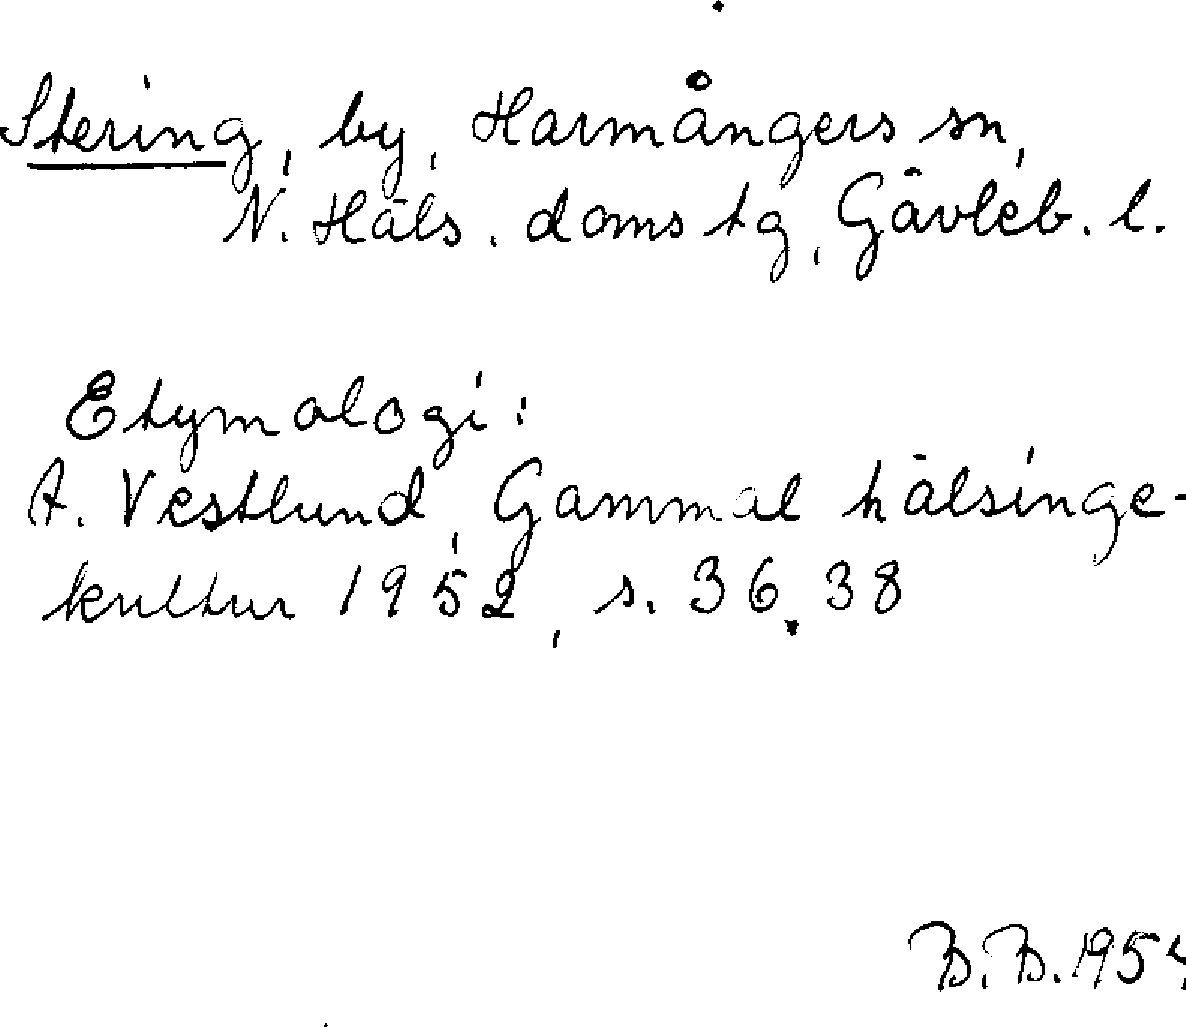 Stering, by, Harmångers sn,
N. Häls. doms tg, Gävleb. l.
Etymologi:
A. Vestlund, Gammal hälsinge-
kultur 1952, s. 36. 38
B.B. 1954